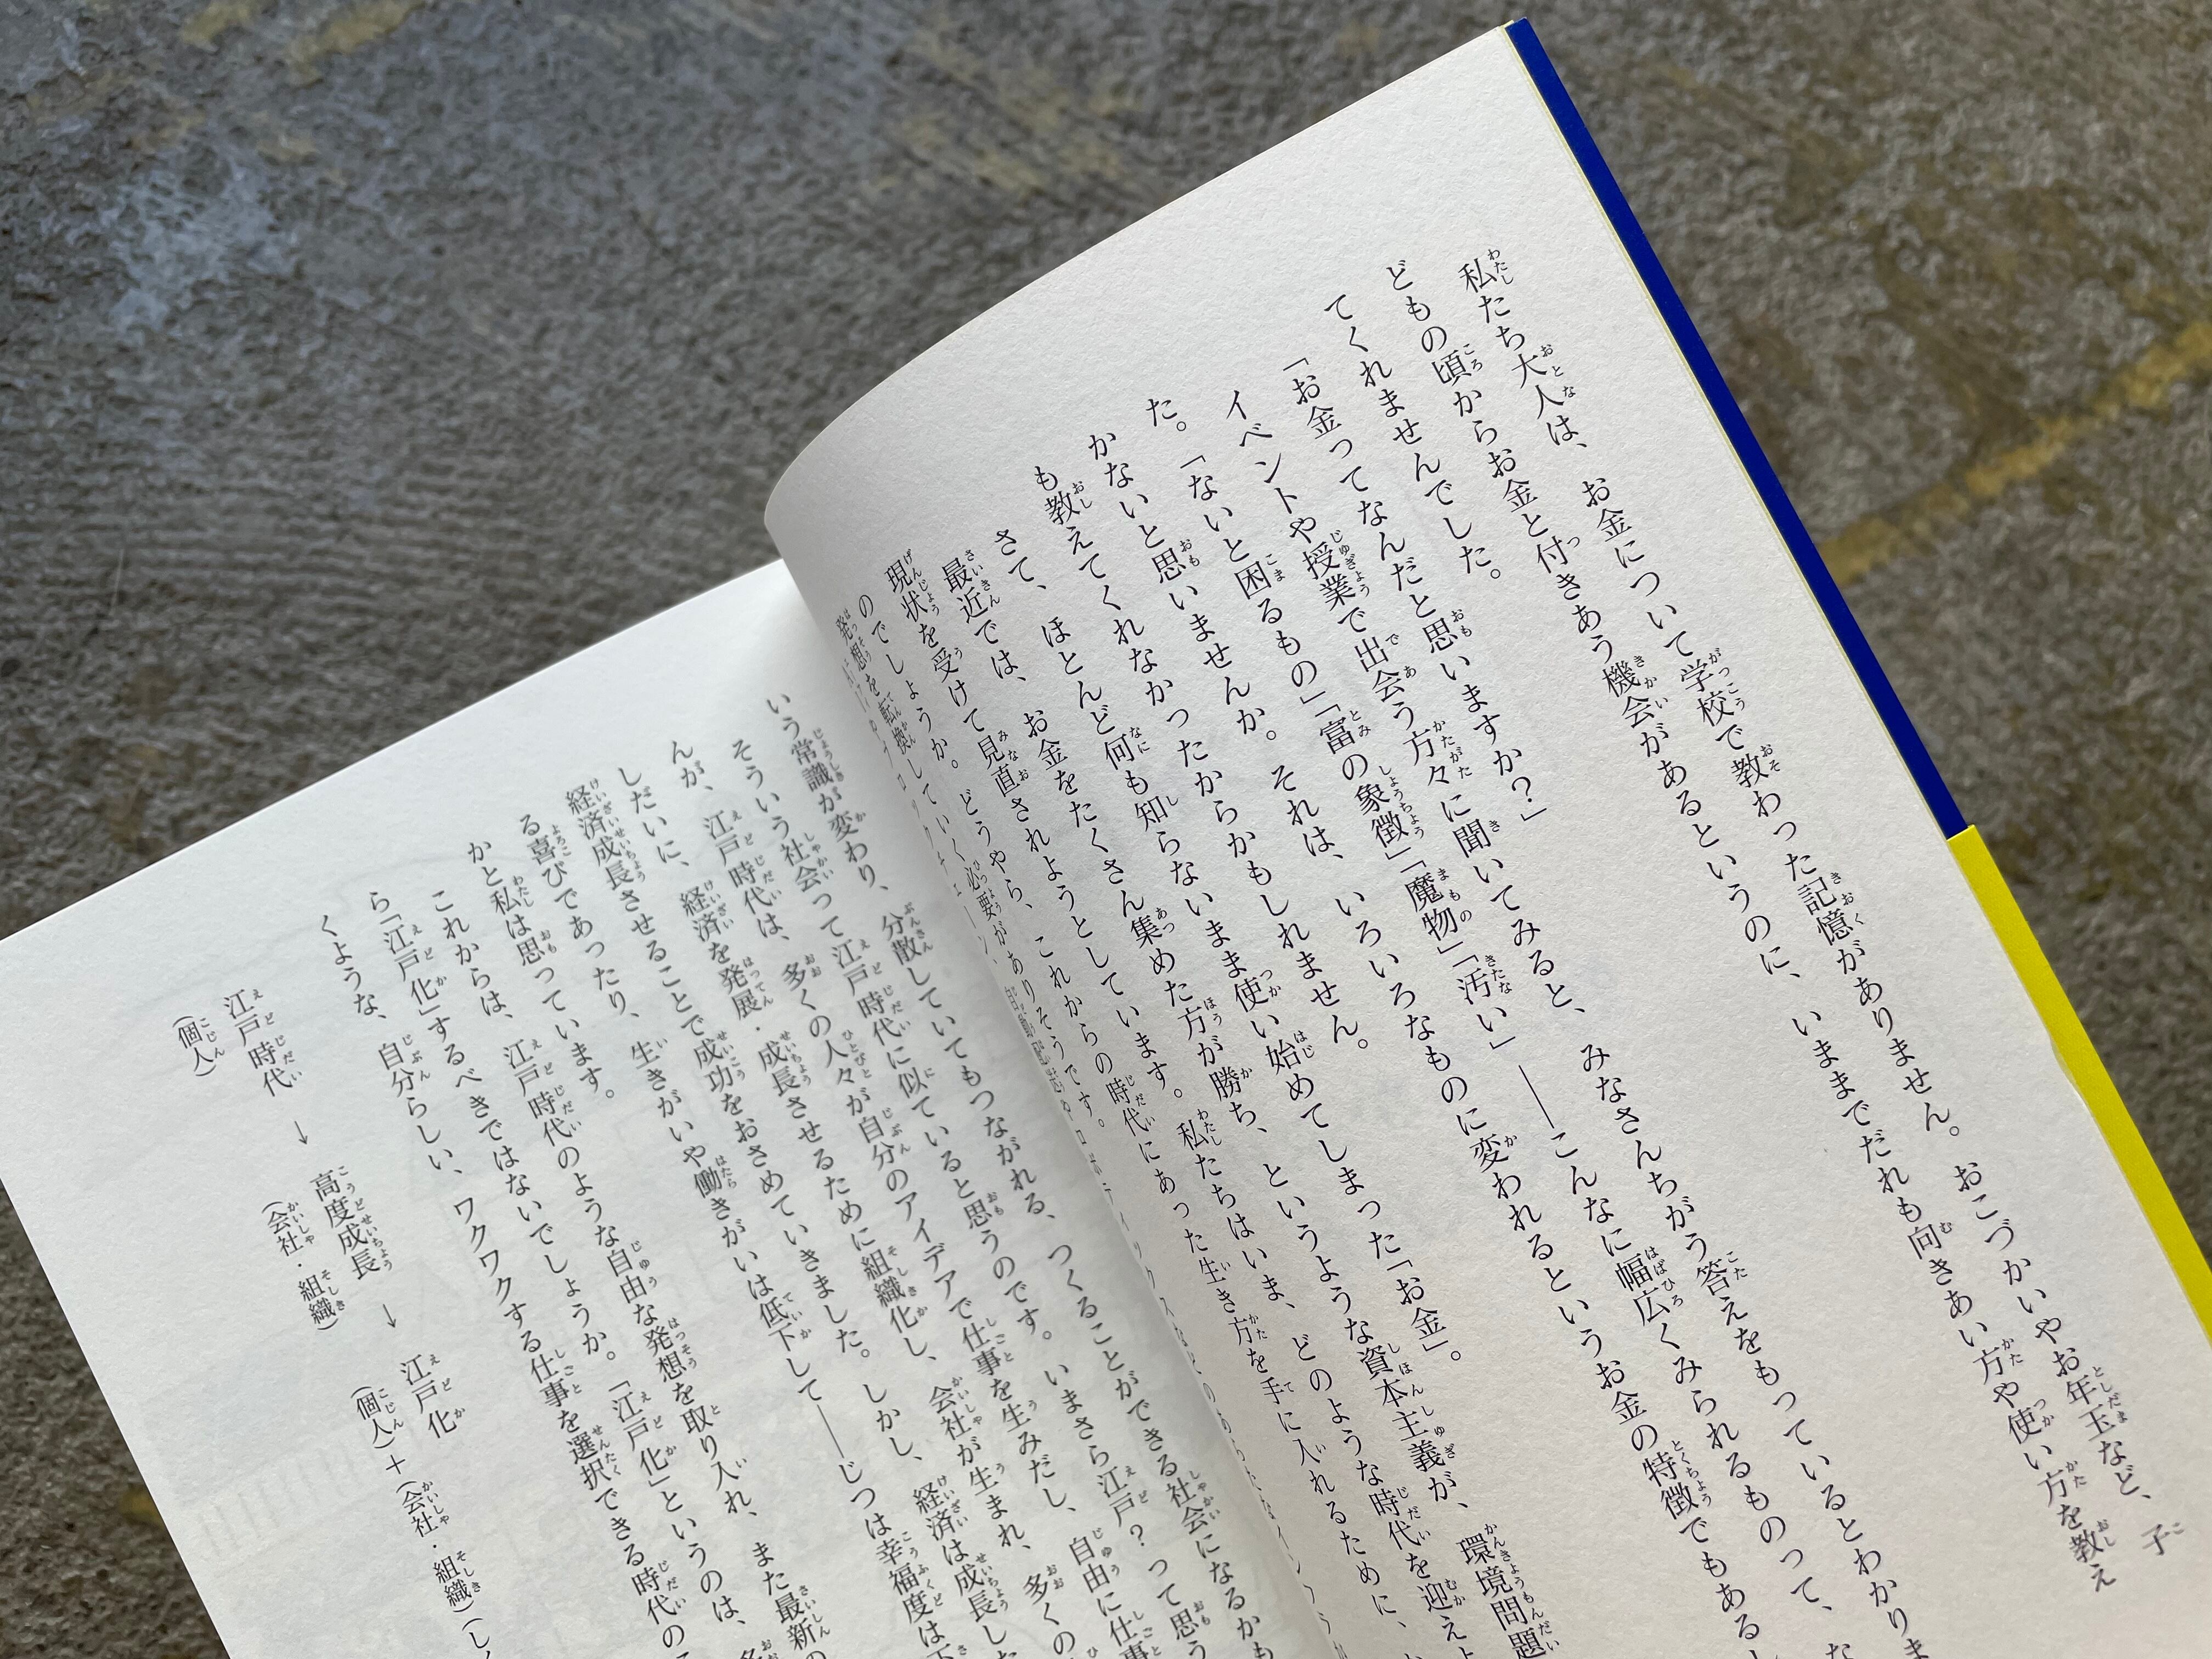 私たち大人は、お金について学校で教わった記憶がありません。おこづかいやお年玉など、子
どもの頃からお金と付きあう機会があるというのに、いままでだれも向きあい方や使い方を教え
てくれませんでした。
「お金ってなんだと思いますか？」
イベントや授業で出会う方々に聞いてみると、みなさんちがう答えをもっているとわかりま
た。「ないと困るもの」「富の象徴」「魔物」「汚い」――こんなに幅広くみられるものって、
かないと思いませんか。それは、いろいろなものに変われるというお金の特徴でもあるし
も教えてくれなかったからかもしれません。
さて、ほとんど何も知らないまま使い始めてしまった「お金」。
最近では、お金をたくさん集めた方が勝ち、というような資本主義が、環境問題
現状を受けて見直されようとしています。私たちはいま、どのような時代を迎えよ
のでしょうか。どうやら、これからの時代にあった生き方を手に入れるために、
発想を転換していく必要がありそうです。
いう常識が変わり、分散していてもつながれる、つくることができる社会になるかも
そういう社会って江戸時代に似ていると思うのです。いまさら江戸？って思う
んが、江戸時代は、多くの人々が自分のアイデアで仕事を生みだし、自由に仕事
しだいに、経済を発展・成長させるために組織化し、会社が生まれ、多くの
経済成長させることで成功をおさめていきました。しかし、経済は成長した
る喜びであったり、生きがいや働きがいは低下して――じつは幸福度は下
かと私は思っています。
これからは、江戸時代のような自由な発想を取り入れ、また最新の
ら「江戸化」するべきではないでしょうか。「江戸化」というのは、
くような、自分らしい、ワクワクする仕事を選択できる時代の
江戸時代 → 高度成長 → 江戸化
（個人） （会社・組織） （個人）＋（会社・組織）